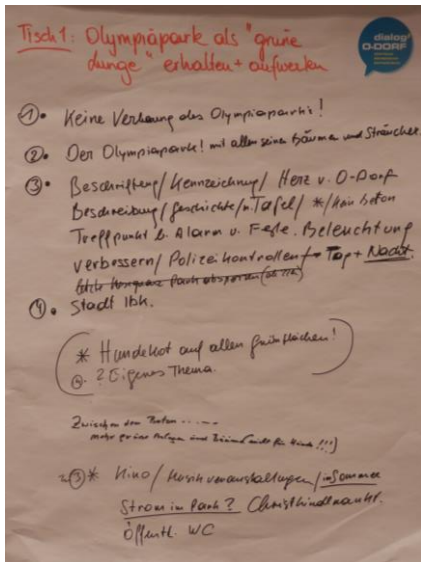 Tisch 1: Olympiapark als "grüne
Lunge" erhalten + aufwerten
dialog
O-DORF
1. Keine Verbauung des Olympiaparks!
2. Der Olympiapark! mit allen seinen Bäumen und Sträuchern
3. Beschriften/Kennzeichnung/Herz v. O-Dorf
Beschreibung/Geschichte/n. Tafel/ * /kein Beton
Treffpunkt b. Alarm u. Feste. Beleuchtung
verbessern/Polizeikontrollen Tag + Nacht.
Park absperren
4. Stadt Ibk.
* Hundekot auf allen Grünflächen!
? Eigenes Thema
Zwischen den
mehr grüne Anlagen und Bäume
zu 3 * Kino/Musikveranstaltungen/im Sommer
Strom im Park? Christkindlmarkt.
Öffentl. WC